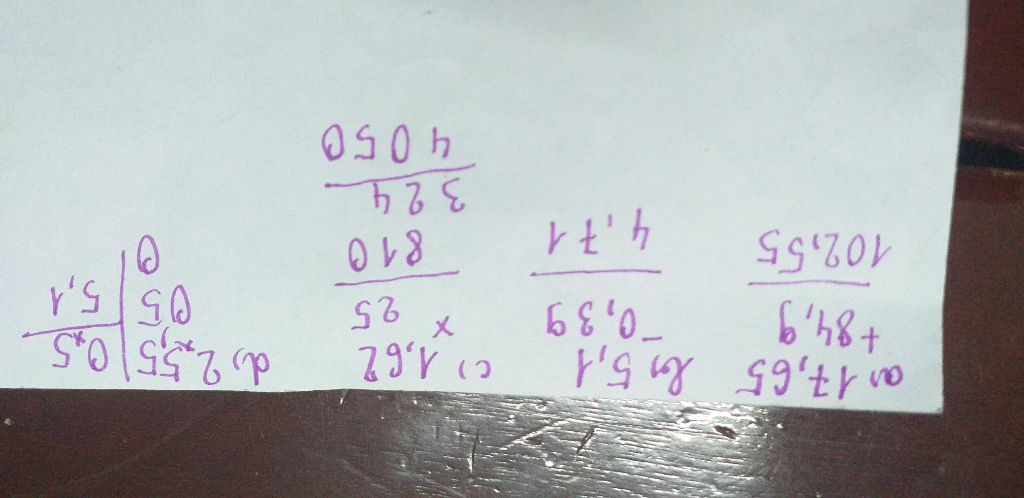 a) 17,65
+ 84,9
102,55
b) 5,1
- 0,39
4,71
c) 1,62
x 25
810
324
4050
d) 2,5,5 | 0,5
05 | 5,1
0